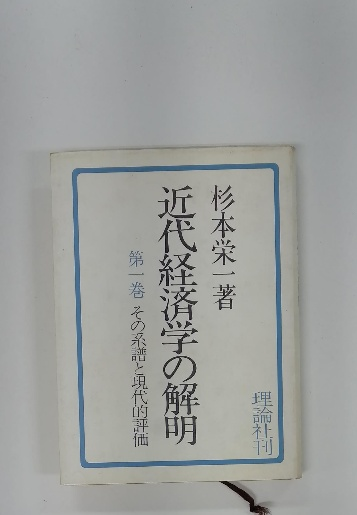 杉本栄一著
近代経済学の解明
第一巻 その系譜と現代的評価
理論社刊